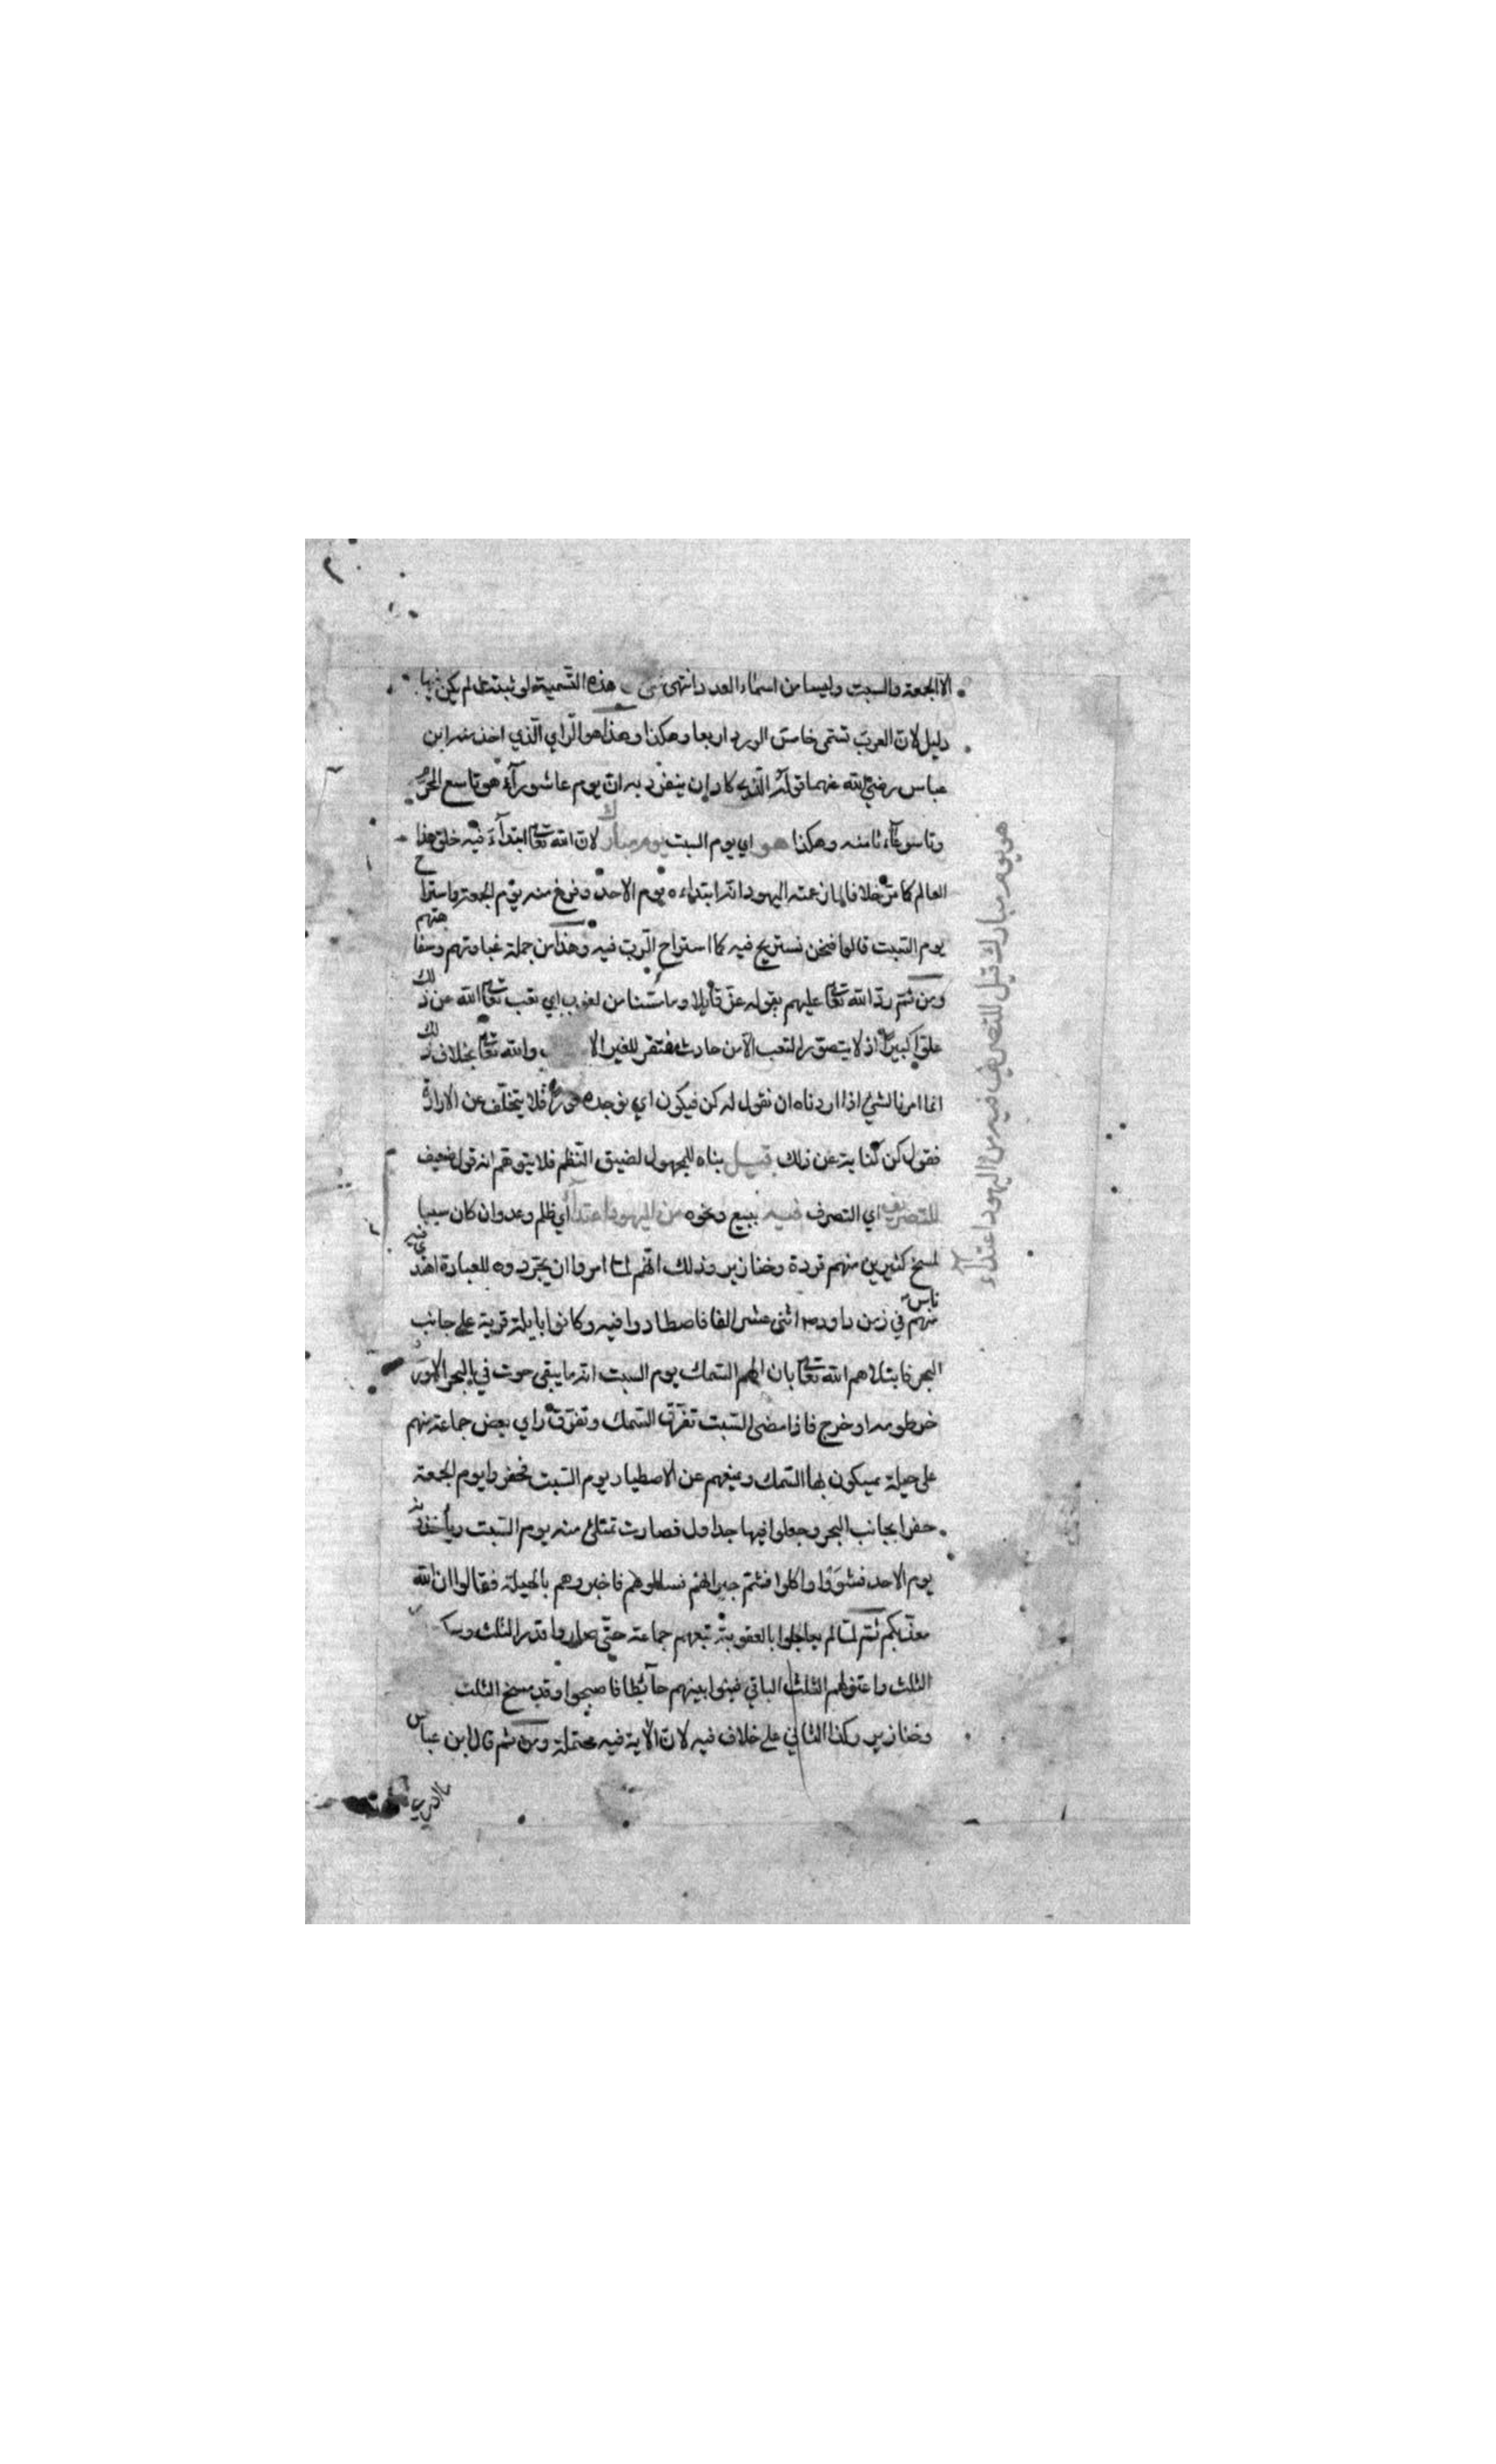 الا الجمعة والسبت وليسا من اسماء العدد انتهى هذه التسمية لو ثبتت لم يكن فيها
دليل لان العرب تسمي خامس الورد اربعا وهكذا وهذا هو الراي الذي اخذ منه ابن
عباس رضي الله عنهما قوله الذي كاد ان ينفرد به ان يوم عاشورآء هو تاسع المحرم
وتاسوعآء ثامنه وهكذا هو اي يوم السبت يوم مبارك لان الله تعا ابتدآء فيه خلق هذا
العالم كما مر خلافا لما زعمته اليهود انه ابتداءه يوم الاحد وفرغ منه يوم الجمعة واستراح
يوم السبت قالوا فنحن نستريح فيه كما استراح الرب فيه وهذا من جملة غباوتهم وسفاهتهم
ومن ثم رد الله تعا عليهم بقوله عز قايلا وما مسنا من لغوب اي تعب تعا الله عن ذلك
علوا كبيرا اذ لا يتصور التعب الا من حادث مفتقر للغير الا والله تعا بخلاف ذلك
انما امرنا لشيء اذا اردناه ان نقول له كن فيكون اي نوجده فلا يتخلف عن الارادة
فقول كن كناية عن ذلك قيل بناه للمجهول لضيق النظم فلا يتوهم انه قول ضعيف
للتصريف اي التصرف فيه ببيع ونحوه من اليهود اعتدآء اي ظلم وعدوان كان سببا
لمسخ كثيرين منهم قردة وخنازير وذلك انهم لما امروا ان يتجردوه للعبادة اعتدى فيه
ناس منهم في زمن داود اثنى عشر الفا فاصطادوا فيه وكانوا بايلة قرية على جانب
البحر فابتلاهم الله تعا بان الهم السمك يوم السبت انه ما يبقى حوت في البحر الا ورد
خرطومه او خرج فاذا مضى السبت تفرق السمك وتفرق راي بعض جماعة منهم
على حيلة يمسكون بها السمك ويمنعهم عن الاصطياد يوم السبت فحفروا يوم الجمعة
حفرا بجانب البحر وجعلوا فيها جداول فصارت تمتلئ منه يوم السبت وياخذونه
يوم الاحد فشووا واكلوا فشم جيرانهم فسالوهم فاخبروهم بالحيلة فقالوا ان الله
معذبكم ثم لما لم يعاجلوا بالعقوبة تبعهم جماعة حتى صاروا قدر الثلث وسكت
الثلث واعتزلهم الثلث الباقي فبنوا بينهم حآئطا فاصبحوا وقد مسخ الثلث
وخنازير وكذا الثاني على خلاف فيه لان الاية فيه محتملة ومن ثم قال ابن عباس
ما ادري
هو يوم مبارك قيل للتصريف فيه من اليهود اعتدآء